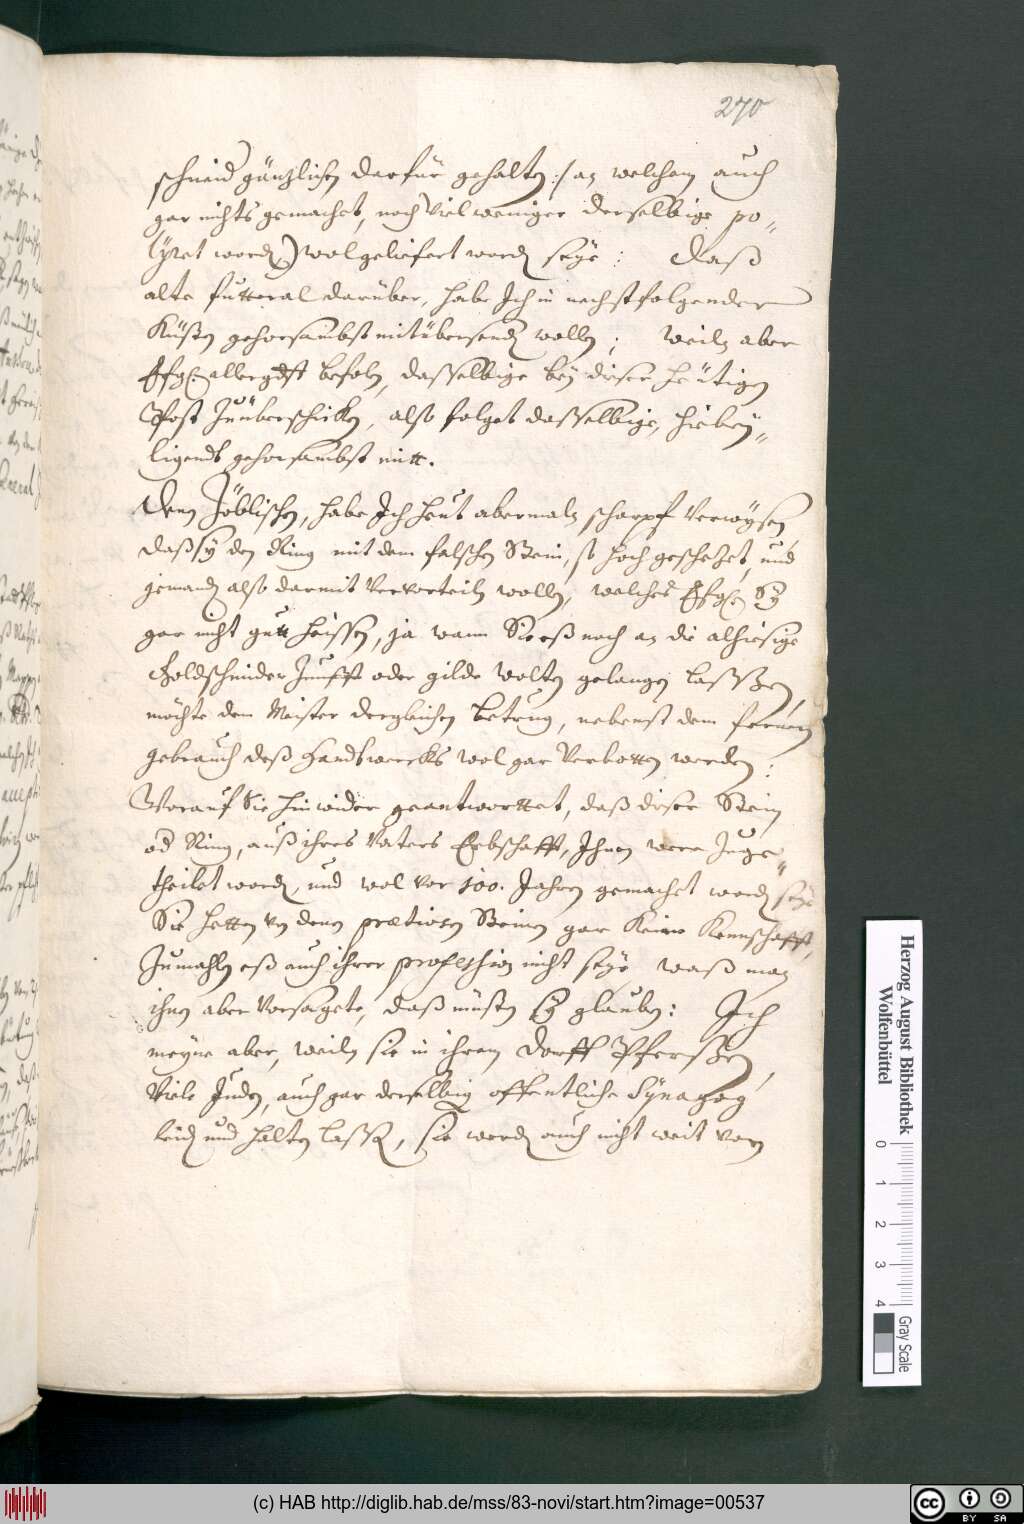 270
schneid gäntzlichen darfür gehalten :/ an welchem auch
gar nichts gemachet, noch viel weniger derselbige po-
lyret worden) wol geliefert worden seye : Daß
alte futteral darüber, habe Ich in nechstfolgender
Küsten gehorsambst mitübersenden wollen ; weiln aber
Efg. allergdst befohlen, dasselbige bey dieser heutigen
Post Zuüberschicken, also folget dasselbige, hiebey-
ligendt gehorsambst mitt.
Denn habe Ich heut abermaln scharpf verwysen,
daß sy den Ring mit dem falschen Stein, so hoch geschetzet, und
jemanden also darmit vervorteiln wollen, welches Efg. Ey
gar nicht gutt heissen, ja wann Sie eß noch an die alhiesige
Goldschmider Zunfft oder gilde wolten gelangen lassen,
möchte dem Meister dergleichen betrug, nebenst dem fernern
gebrauch deß Handtwercks wol gar verbotten werden :
Worauf Sie hinwider geantworttet, daß dieser Stein
od Ring, auß ihres Vaters Erbschafft, Ihnen were Zuge-
theilet worden, und wol vor 100. Jahren gemachet worden seye
Sie hetten von denen pretiosen Steinen gar Keine Kennschafft,
Zumahln eß auch ihrer profession nicht seye waß man
ihnen aber vorsagete, daß müsten sy glauben : Ich
meyne aber, weiln sie in ihrem Dorff Pfersheen,
viele Juden, auch gar derselbig offentliche Synagog
leiden und halten lassen, sie werden auch nicht weit von
Herzog August Bibliothek
Wolfenbüttel
0 1 2 3 4
Gray Scale
(c) HAB http://diglib.hab.de/mss/83-novi/start.htm?image=00537
cc BY SA